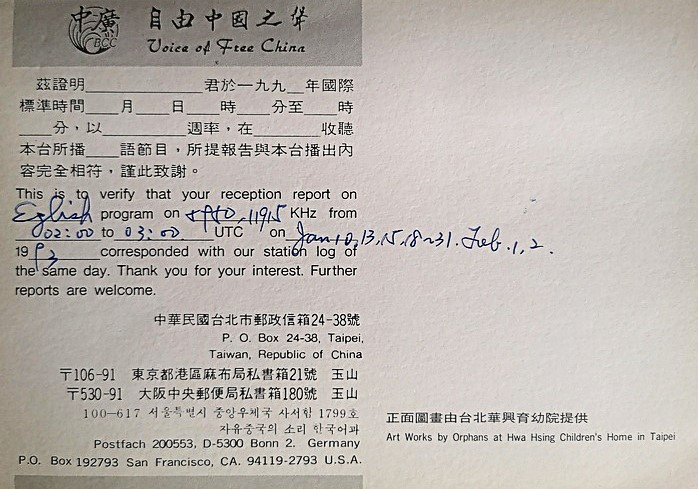 中廣 自由中國之聲
BCC Voice of Free China
茲證明____________君於一九九__年國際
標準時間____月____日____時____分至____時
____分，以________週率，在________收聽
本台所播____語節目，所提報告與本台播出內
容完全相符，謹此致謝。
This is to verify that your reception report on
English program on 5950, 11915 KHz from
02:00 to 03:00 UTC on Jan 10, 13, 15, 18~31. Feb. 1, 2.
1993 corresponded with our station log of
the same day. Thank you for your interest. Further
reports are welcome.
中華民國台北市郵政信箱24-38號
P. O. Box 24-38, Taipei,
Taiwan, Republic of China
〒106-91 東京都港區麻布局私書箱21號 玉山
〒530-91 大阪中央郵便局私書箱180號 玉山
100-617 서울특별시 중앙우체국 사서함 1799호
자유중국의 소리 한국어과
Postfach 200553, D-5300 Bonn 2. Germany
P.O. Box 192793 San Francisco, CA. 94119-2793 U.S.A.
正面圖畫由台北華興育幼院提供
Art Works by Orphans at Hwa Hsing Children's Home in Taipei